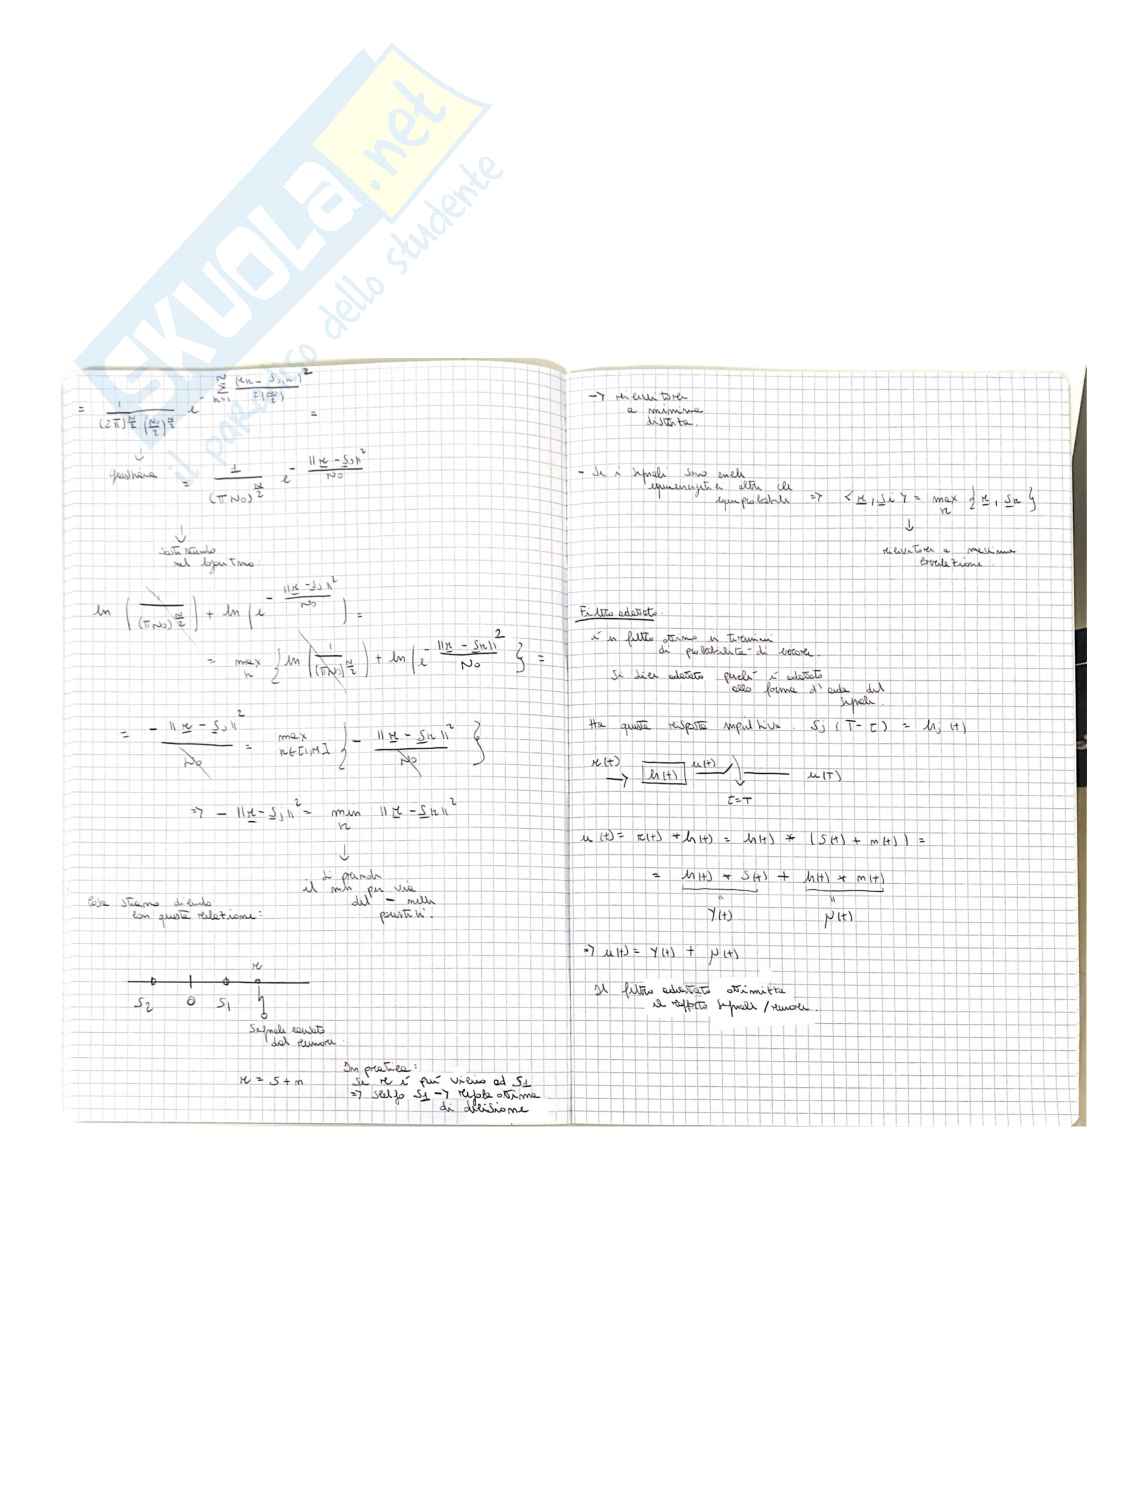 SKUOLA.net
il paradiso dello studente
= 1 / (2π)^(N/2) (N₀/2)^(N/2) e^(- Σ_(n=1)^N |r_n - S_j,n|² / 2(N₀/2)) =
↓
gaussiana = 1 / (πN₀)^(N/2) e^(- ||r - S_j||² / N₀)
↓
sostituendo
nel logaritmo
ln ( 1 / (πN₀)^(N/2) ) + ln ( e^(- ||r - S_j||² / N₀) ) =
= max_n { ln ( 1 / (πN₀)^(N/2) ) + ln ( e^(- ||r - S_n||² / N₀) } =
= - ||r - S_j||² / N₀ = max_(n∈[1,M]) { - ||r - S_n||² / N₀ }
=> - ||r - S_j||² = min_n ||r - S_n||²
↓
si prende
il min per via
del - nella
Cosa stiamo dicendo
con questa relazione:
r
S2 0 S1
Segnale
dal rumore
r = S + n
In pratica:
Se r è più vicino ad S1
=> scelgo S1 -> regola ottima
di decisione
-> ricevitore
a minima
distanza.
- Se i segnali sono anche
equienergetici oltre che
equiprobabili => < r, Si > = max_n { r, Sn }
↓
ricevitore a massima
correlazione.
Filtro adattato.
è un filtro ottimo in termini
di probabilità di errore.
Si dice adattato perché è adattato
alla forma d'onda del
segnale.
Ha questa risposta impulsiva. Sj (T - t) = hj (t)
r(t) h(t) u(t) u(T)
t=T
u(t) = r(t) * h(t) = h(t) * (S(t) + n(t)) =
= h(t) * S(t) + h(t) * n(t)
Y(t) μ(t)
=> u(t) = Y(t) + μ(t)
Il filtro adattato ottimizza
il rapporto segnale/rumore.